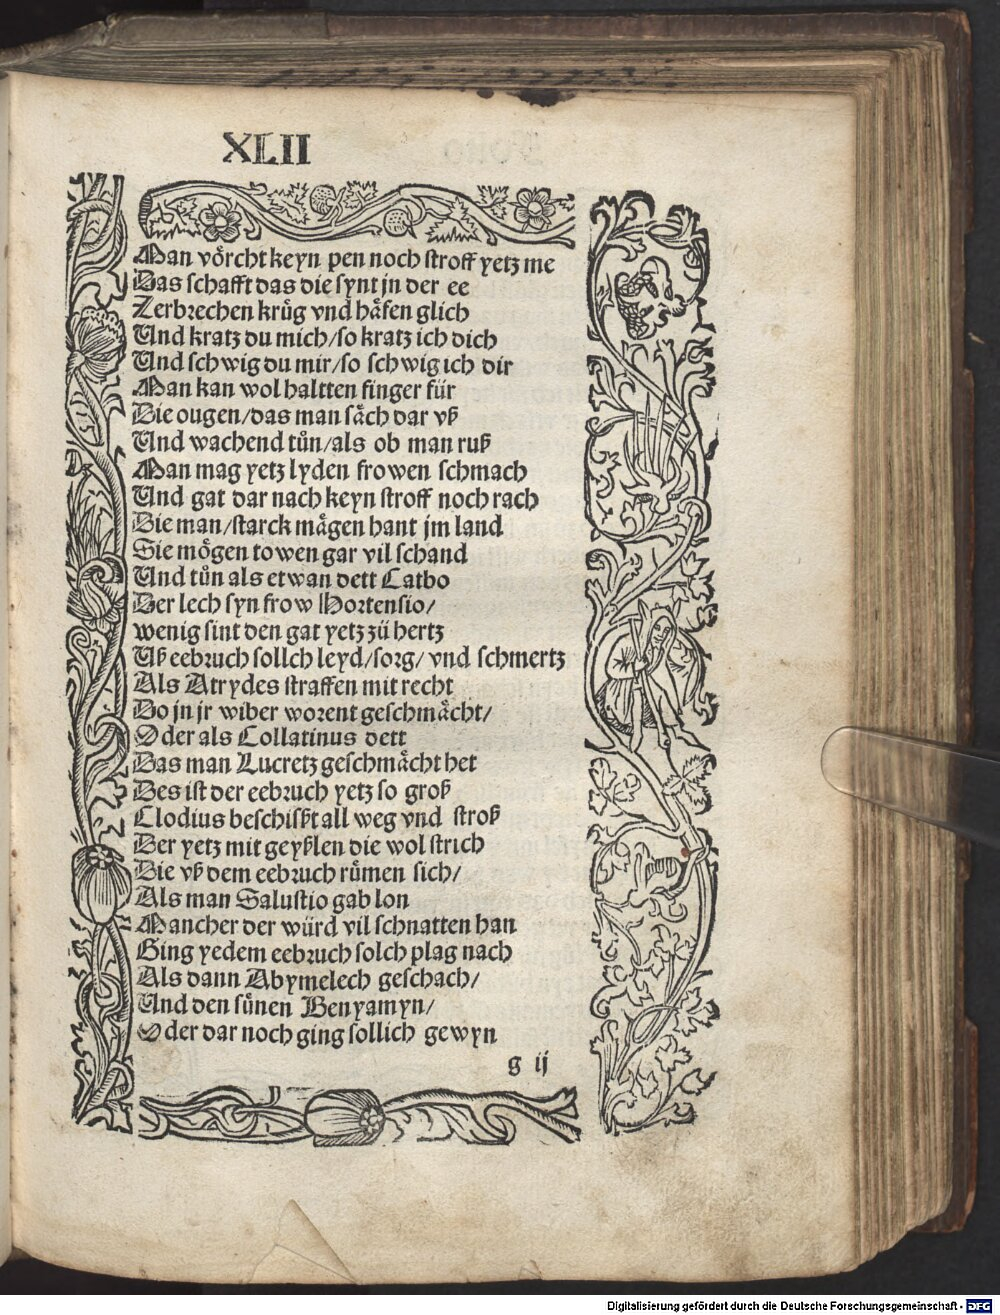 XLII
Man voͤrcht keyn pen noch stroff yetz me
Das schafft das die synt jn der ee
Zerbrechen kruͤg vnd haͤfen glich
Und kratz du mich/so kratz ich dich
Und schwig du mir/so schwig ich dir
Man kan wol haltten finger für
Die ougen/das man saͤch dar vß
Und wachend tuͦn/als ob man ruß
Man mag yetz lyden frowen schmach
Und gat dar nach keyn stroff noch rach
Die man/starck maͤgen hant jm land
Sie moͤgen towen gar vil schand
Und tuͦn als etwan dett Catho
Der lech syn frow Hortensio/
wenig sint den gat yetz zuͤ hertz
Uß eebruch sollch leyd/sorg/ vnd schmertz
Als Atrydes straffen mit recht
Do jn jr wiber worent geschmaͤcht/
Oder als Collatinus dett
Das man Lucretz geschmaͤcht het
Des ist der eebruch yetz so groß
Clodius beschißt all weg vnd stroß
Der yetz mit geyßlen die wol strich
Die vß dem eebruch ruͤmen sich/
Als man Salustio gab lon
Mancher der würd vil schnatten han
Ging yedem eebruch solch plag nach
Als dann Abymelech geschach/
Und den suͤnen Benyamyn/
Oder dar noch ging sollich gewyn
g ij
Digitalisierung gefördert durch die Deutsche Forschungsgemeinschaft - DFG